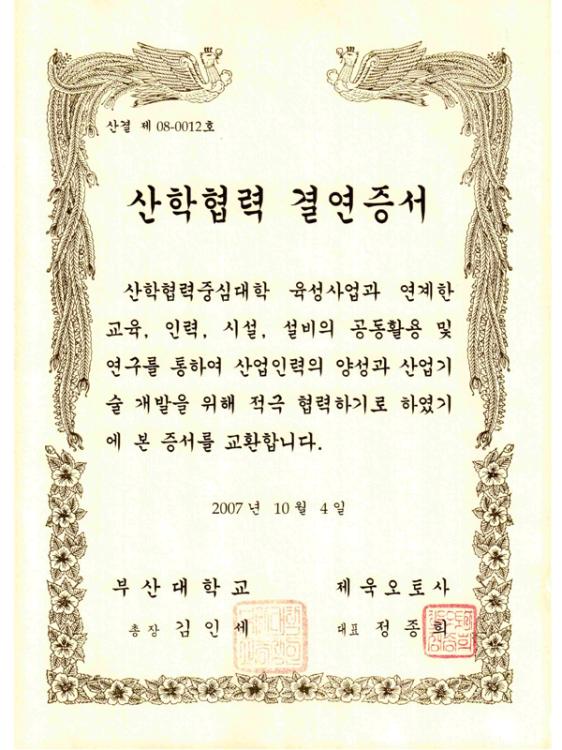 산결 제 08-0012호
산학협력 결연증서
산학협력중심대학 육성사업과 연계한
교육, 인력, 시설, 설비의 공동활용 및
연구를 통하여 산업인력의 양성과 산업기
술 개발을 위해 적극 협력하기로 하였기
에 본 증서를 교환합니다.
2007 년 10 월 4 일
부산대학교 제육오토사
총장 김인세 대표 정종희